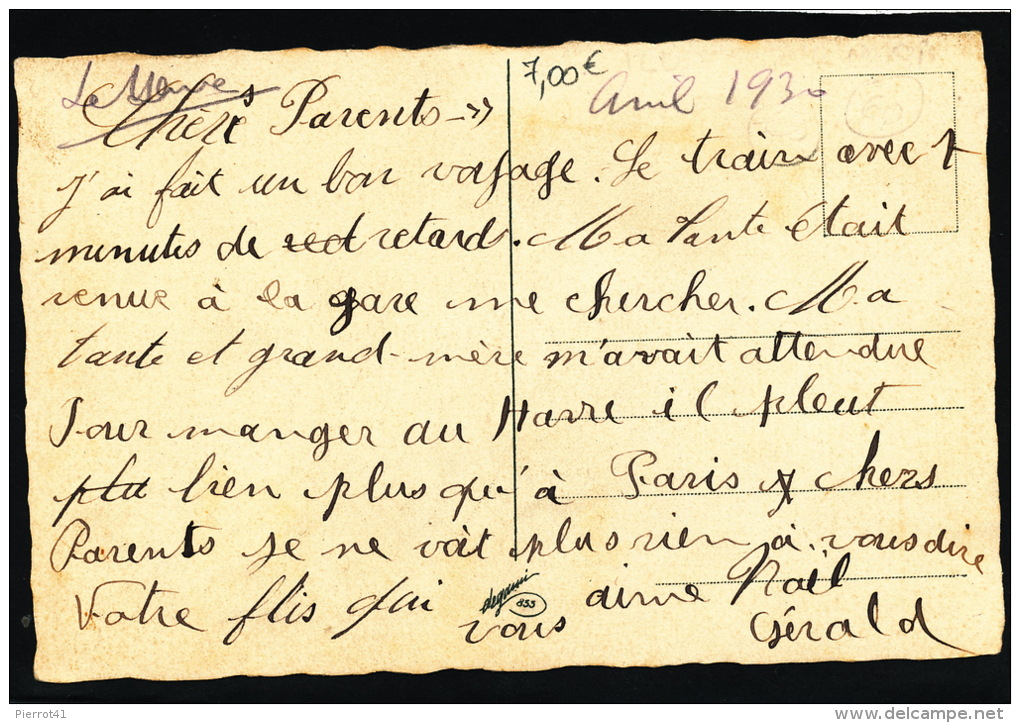 Le Havre
7,00€
Avril 1930
Chèrs Parents
J'ai fait un bon voyage. Le train avec 1
minutes de retards. Ma Tante était
venue à la gare me chercher. Ma
tante et grand-mère m'avait attendue
Pour manger au Havre il pleut
bien plus qu'à Paris chers
Parents je ne voit plus rien à vous dire
Votre flis qui vous aime Noël
Gérald
degami
855
Pierrot41
www.delcampe.net